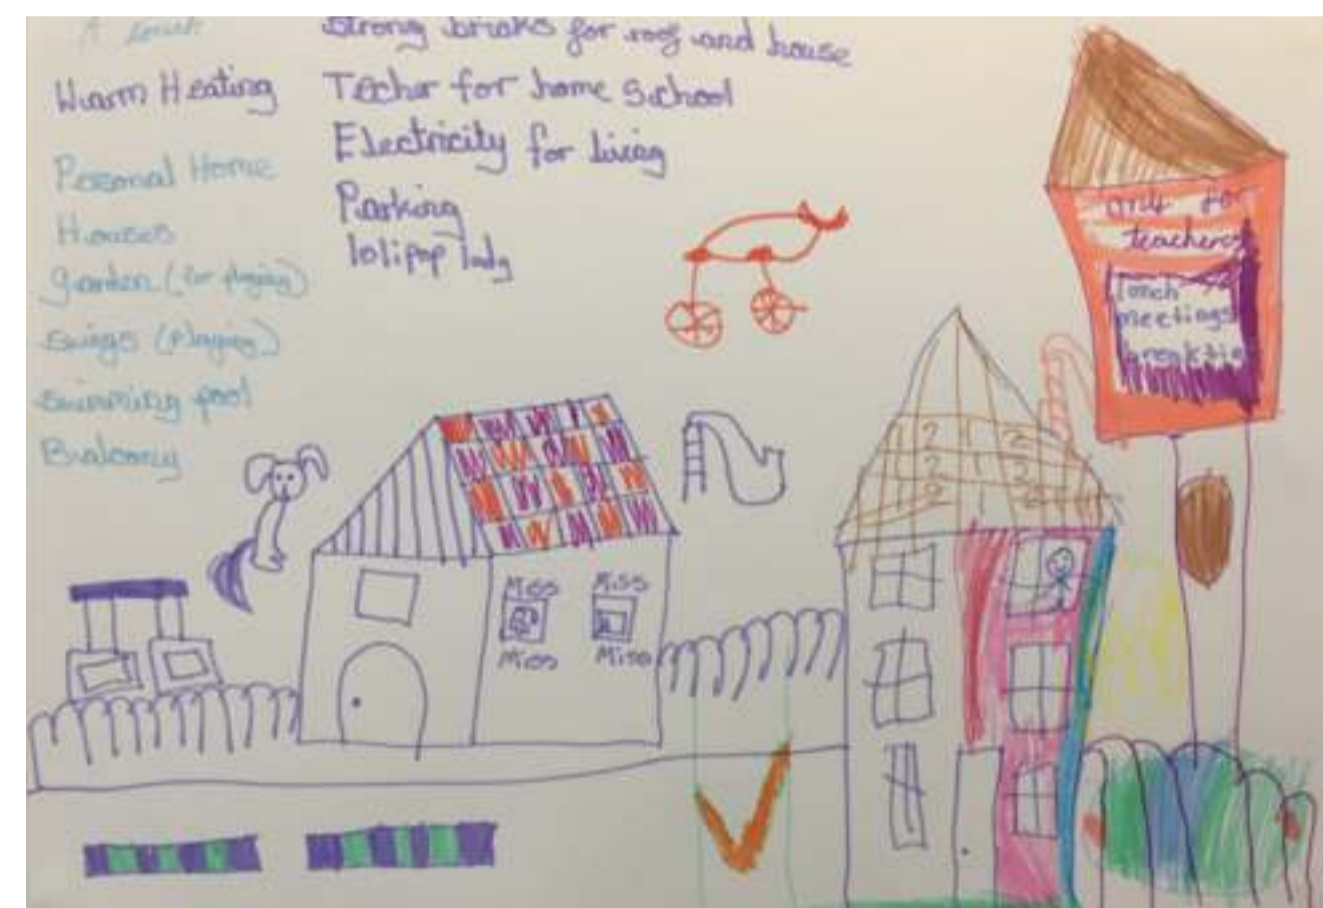 Warm Heating
Pesonal Home
Houses
garden (for playing)
swings (playing)
swimming pool
Balcony
strong briaks for roof and house
Techer for home School
Electricity for living
Parking
lolipop lady
only for
teachers
lonch
meetings
breaktie
Miss Miss
Miss Miss